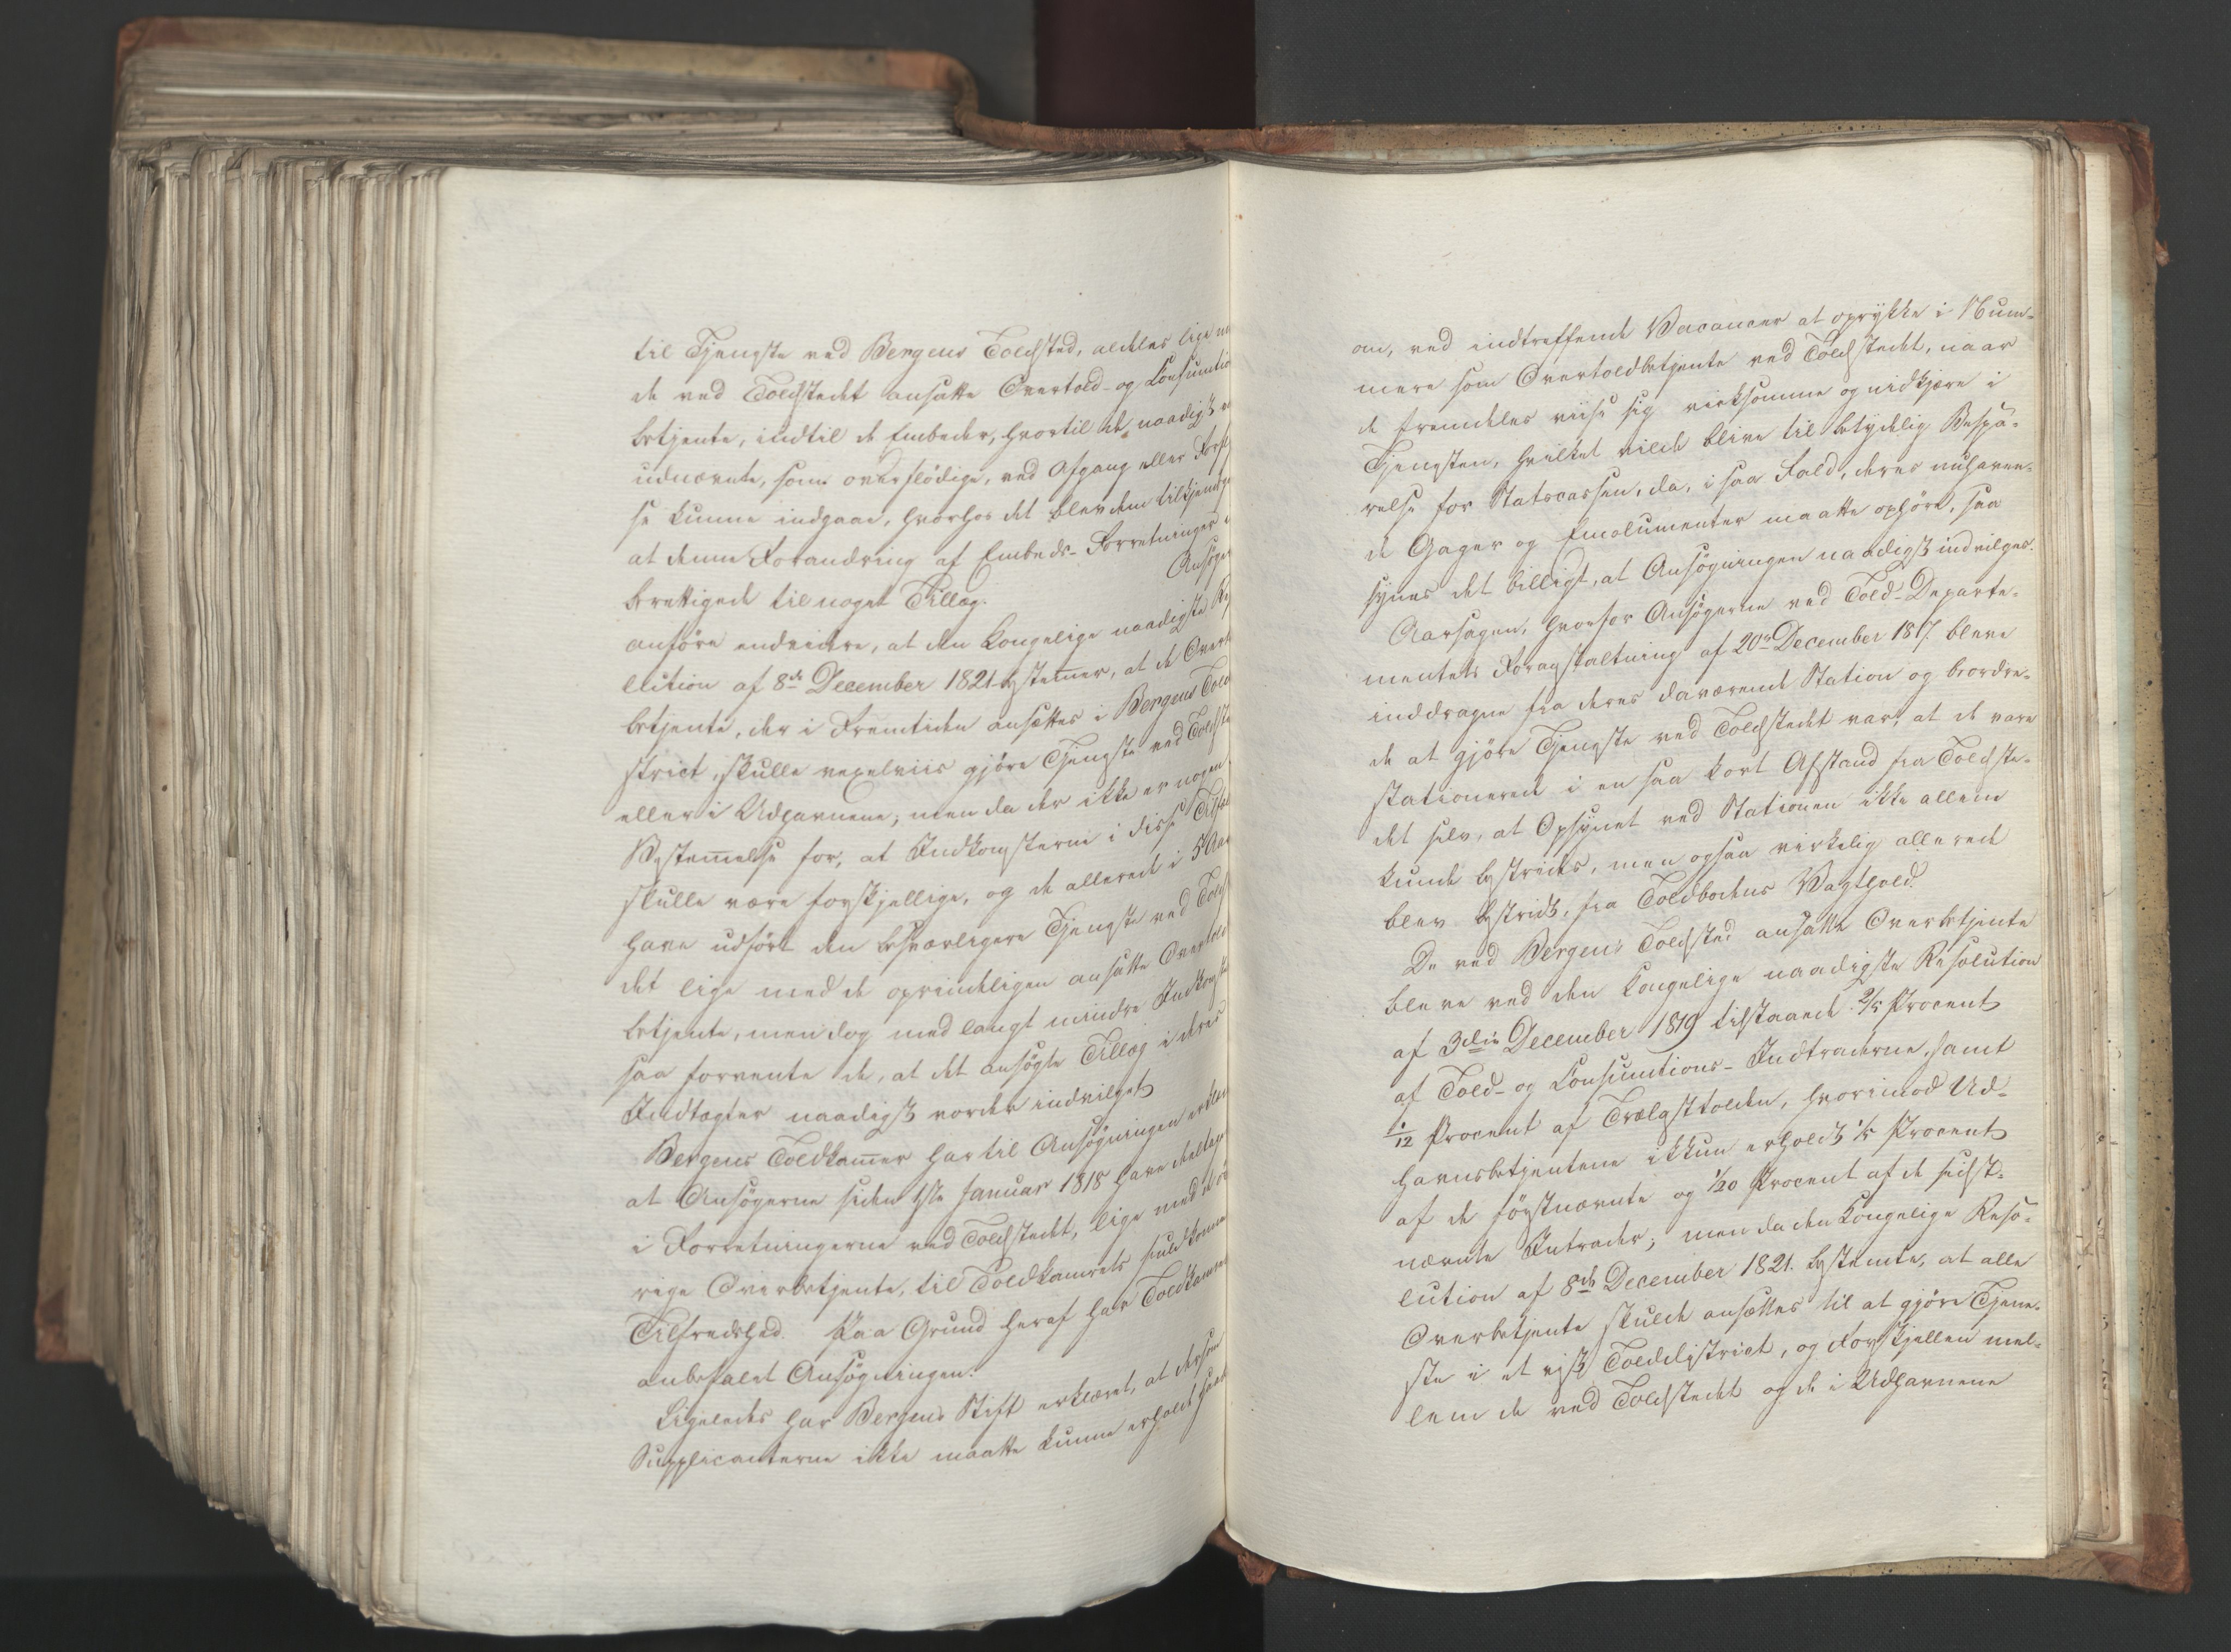 til Tjeneste ved Bergens Toldsted, aldeles lige
de ved Toldstedet ansatte Overtold- og Consumtio
betjente, indtil de Embeder, hvortil de naadigst
udnævnte, som overflödige, ved Afgang eller
se kunne indgaae, hvorhos det blev dem tilkjende
at denne Forandring af Embeds-Forretninger
berettigede til noget Tillæg. Ansöge
anföre endvidere, at den Kongelige naadigste
lution af 8de December 1821 bestem̄er, at de Overt
betjente, der i Fremtiden ansættes i Bergens Told
strict, skulle vexelviis gjöre Tjeneste ved Toldste
eller i Udhavnene; men da der ikke er nogen
Bestem̄else for, at Indkomsterne i disse
skulle være forskjellige, og de allerede i 5 Aar
have udfört den besværligere Tjeneste ved Told
det lige med de oprindeligen ansatte Overtold
betjente, men dog med langt mindre Indkomste
saa forvente de, at det ansögte Tillæg i deres
Indtægter naadigst vorder indvilget
Bergens Toldkam̄er har til Ansögningen erklæ
at Ansögerne siden 1ste Januar 1818 have deeltag
i Forretningerne ved Toldstedet, lige med de ö
rige Overbetjente, til Toldkamrets fuldkomne
Tilfredshed. Paa Grund heraf har Toldkamre
anbefalet Ansögningen.
Ligeledes har Bergens Stift erklæret, at dersom
Supplicanterne ikke maatte kunne erholdt
om, ved indtreffende Vacancer at oprykke i Num-
mere som Overtoldbetjente ved Toldstedet, naar
de fremdeles viise sig virksomme og nidkjære i
Tjenesten, hvilket vilde blive til betydelig Bespa-
relse for Statscassen, da, i saa Fald, deres nuhaven-
de Gager og Emolumenter maatte ophöre, saa
synes det billigt, at Ansögningen naadigst indvilges.
Aarsagen, hvorfor Ansögerne ved Told-Departe-
mentets Foranstaltning af 20de December 1817 bleve
inddragne fra deres daværende Station og beordre-
de at gjöre Tjeneste ved Toldstedet var, at de vare
stationerede i en saa kort Afstand fra Toldste-
det selv, at Opsynet ved Stationen ikke allene
kunde bestrides, men ogsaa virkelig allerede
blev bestridt, fra Toldbodens Vagthold.
De ved Bergens Toldsted ansatte Overbetjente
bleve ved den Kongelige naadigste Resolution
af 3die December 1819 tilstaaede 2/5 Procent
af Told- og Consumtions-Indtraderne, samt
1/12 Procent af Trælasttolden, hvorimod Ud-
havnsbetjentene ikkun erholdt 1/5 Procent
af de förstnævnte og 1/20 Procent af de sidst-
nævnte Intrader; men da den Kongelige Reso-
lution af 8de December 1821. bestemte, at alle
Overbetjente skulde ansættes til at gjöre Tjene-
ste i et vist Tolddistrict, og Forskjellen mel-
lem de ved Toldstedet og de i Udhavnene